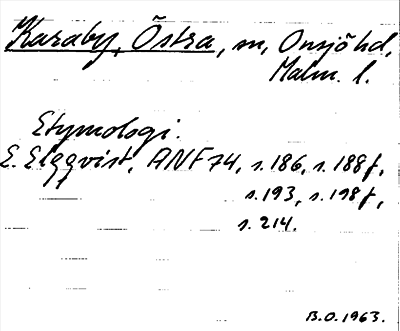 Karaby, Östra, sn, Onsjö hd,
Malm. l.
Etymologi.
E. Elgqvist, ANF 74, s. 186, s. 188 f,
s. 193, s. 198 f,
s. 214.
B.O. 1963.